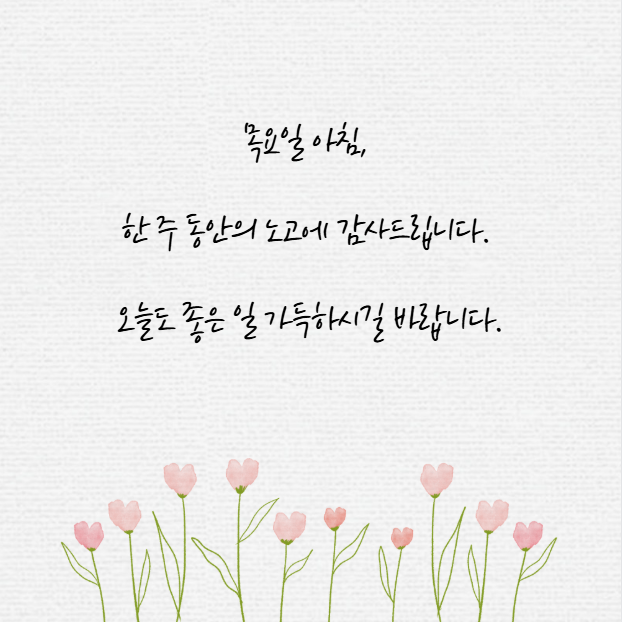 목요일 아침,
한 주 동안의 노고에 감사드립니다.
오늘도 좋은 일 가득하시길 바랍니다.